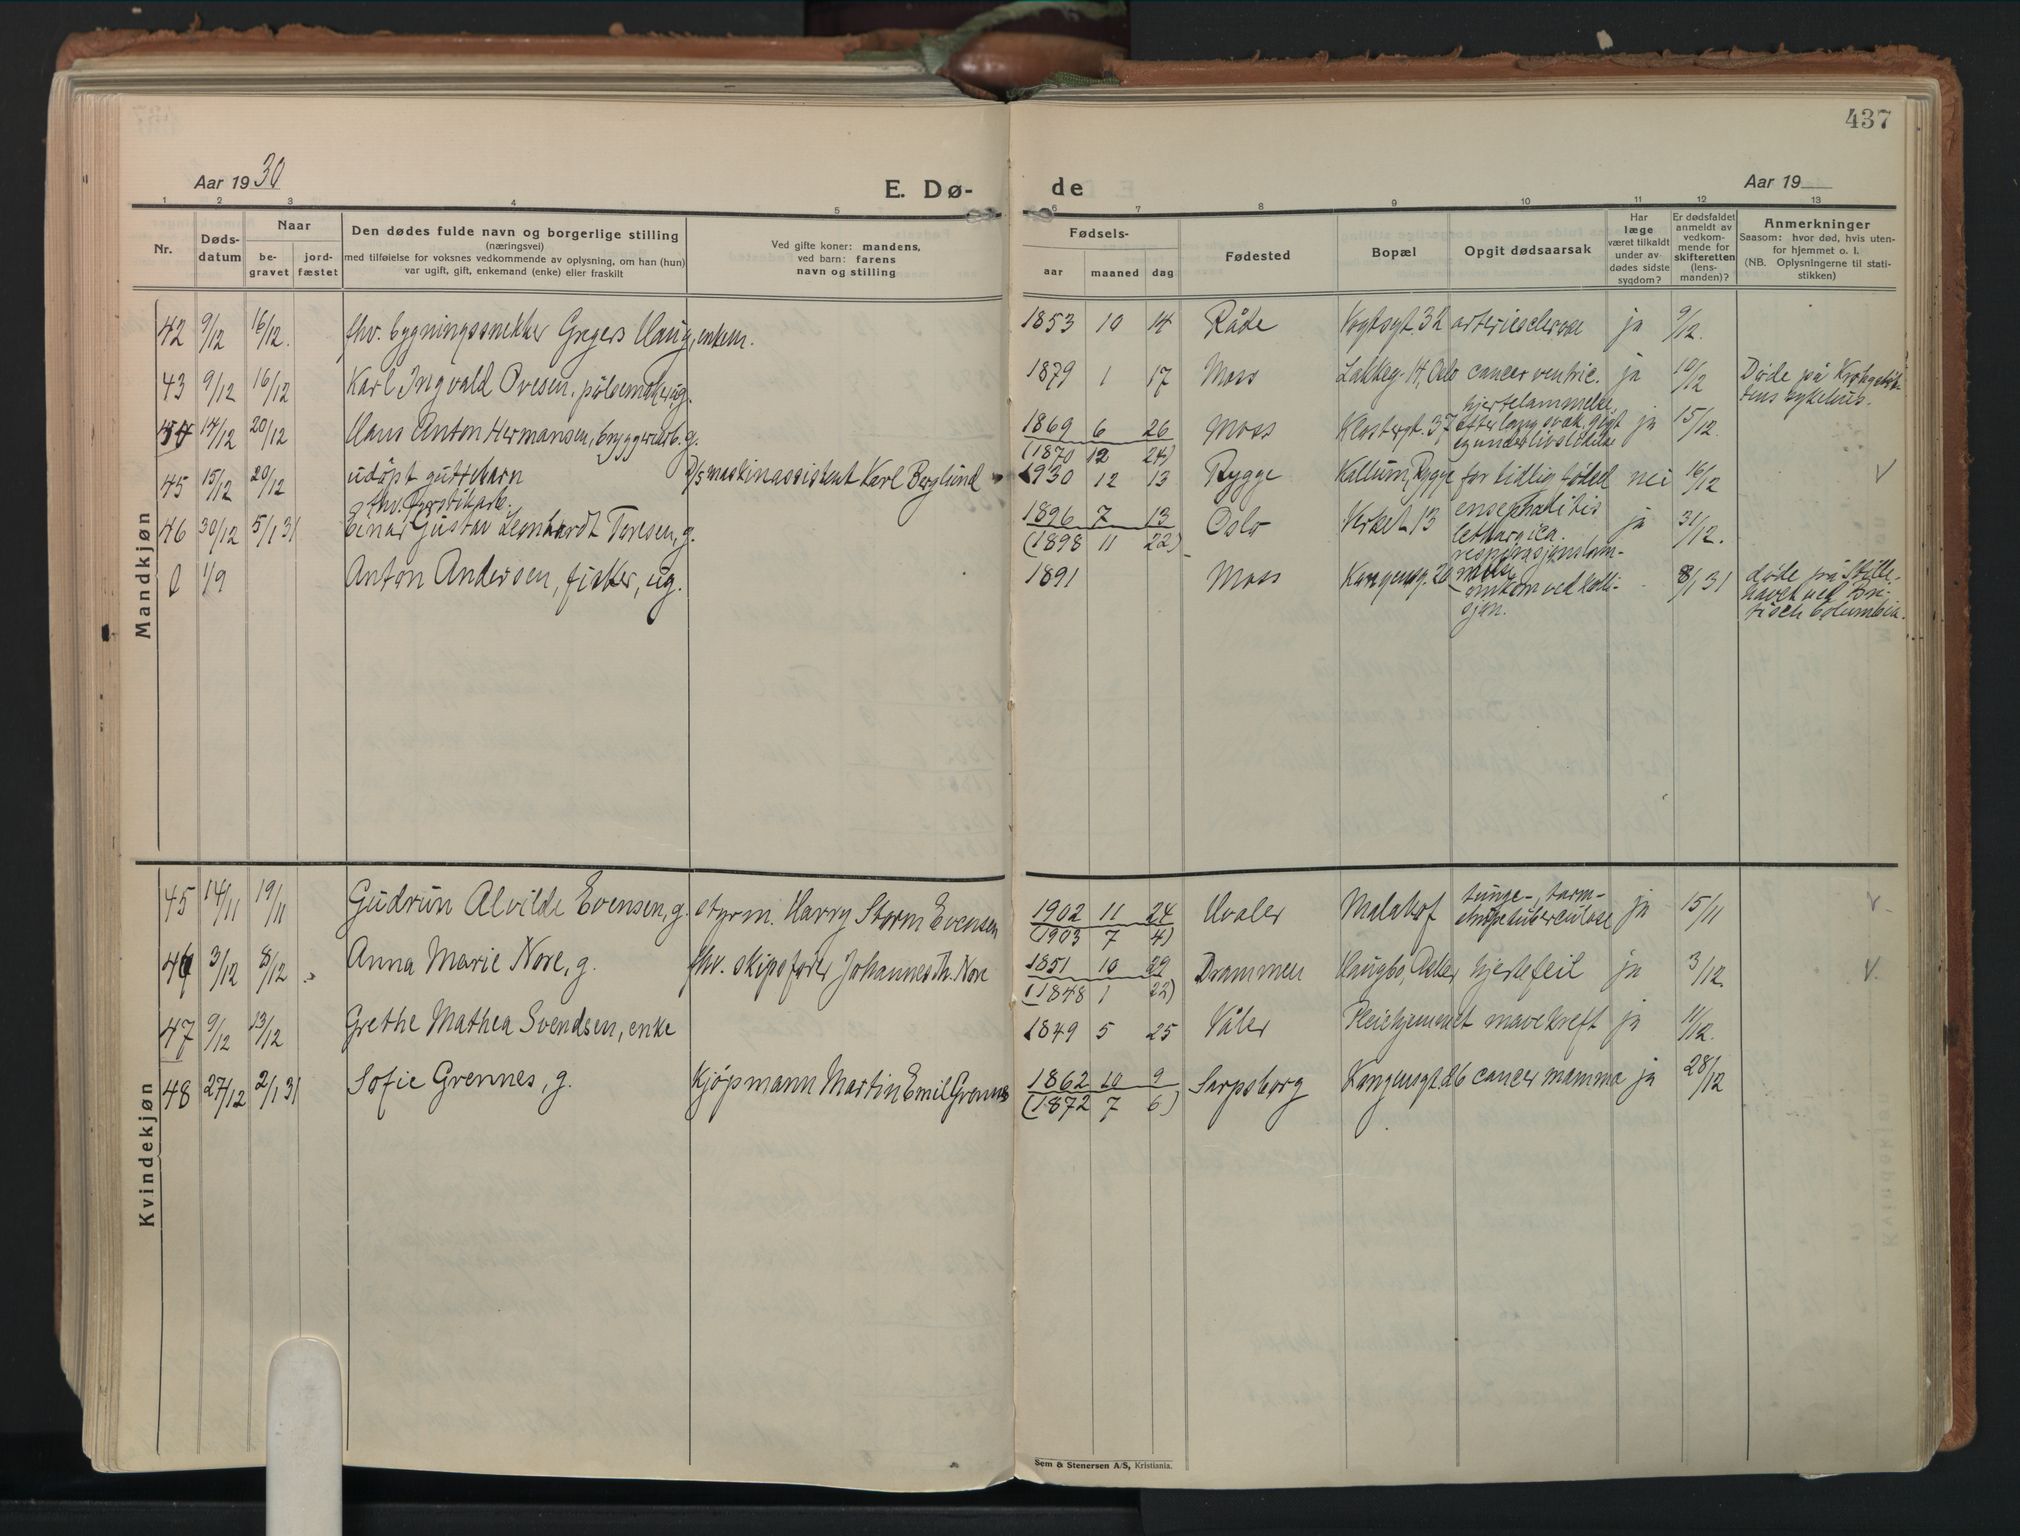 437
Aar 1930
E. Dø-
de
Aar 19
1 2 3 4 5 6 7 8 9 10 11 12 13
Nr.
Døds-
datum
Naar
be-
gravet
jord-
fæstet
Den dødes fulde navn og borgerlige stilling
(næringsvei)
med tilføielse for voksnes vedkommende av oplysning, om han (hun)
var ugift, gift, enkemand (enke) eller fraskilt
Ved gifte koner: mandens,
ved barn: farens
navn og stilling
Fødsels-
aar maaned dag
Fødested
Bopæl
Opgit dødsaarsak
Har
læge
været tilkaldt
under av-
dødes sidste
sygdom?
Er dødsfaldet
anmeldt av
vedkom-
mende for
skifteretten
(lens-
manden)?
Anmerkninger
Saasom: hvor død, hvis uten-
for hjemmet o. l.
(NB. Oplysningerne til stati-
stikken)
Mandkjøn
42 9/12 16/12. fhv. bygningssnekker Gregers Haug, enkem. 1853 10 14 Råde Vogtsgt. 32 arteriesclerose ja 9/12.
43 9/12 16/12 Karl Ingvald Ovesen, pølsemaker, ug. 1879 1 17 Moss Lakkeg. 14, Oslo cancer ventric. ja 10/12 Døde på Krohgstøt-
tens sykehus.
44 14/12 20/12 Hans Anton Hermansen, bryggeriarb. g. 1869 6 26 Moss Klostergt. 37 hjertelammelse,
efter lang svak. gigt
og underlivslidelse ja 15/12.
(1870 12 24)
45 15/12 20/12 udöpt guttebarn D/s maskinassistent Karl Berglund 1930 12 13 Rygge Kallum, Rygge for tidlig födsel nei 16/12 V
fhv. fyrstikarb.
46 30/12 5/1 31 Einar Gustav Leonhardt Toresen, g. 1896 7 13 Oslo Verket 13 encephalitis
lethargica.
respirasjonslam-
melse ja 31/12.
(1898 11 22)
0 1/9 Anton Andersen, fisker, ug. 1891 Moss Kongensg. 20 omkom ved kolli-
sjon. - 8/1 31 døde på Stille-
havet ved Bri-
tisch Columbia.
Kvindekjøn
45 14/11 19/11 Gudrun Alvilde Evensen, g. styrm. Harry Storm Evensen 1902 11 24 Hvaler Melahof lunge-, tarm-
strupetuberculose ja 15/11
(1903 7 4)
46 3/12 8/12 Anna Marie Nore, g. fhv. skipsfører Johannes Th. Nore 1851 10 29 Drammen Haugbo, Asker hjertefeil ja 3/12. V.
(1848 1 22)
47 9/12 13/12 Grethe Mathea Svendsen, enke 1849 5 25 Våler Pleiehjemmet mavekreft ja 11/12.
48 27/12 2/1 31 Sofie Grennes, g. Kjöpmann Martin Emil Grennes 1862 10 9 Sarpsborg Kongensgt 26 cancer mamma ja 28/12
(1872 7 6)
Sem & Stenersen A/S, Kristiania.